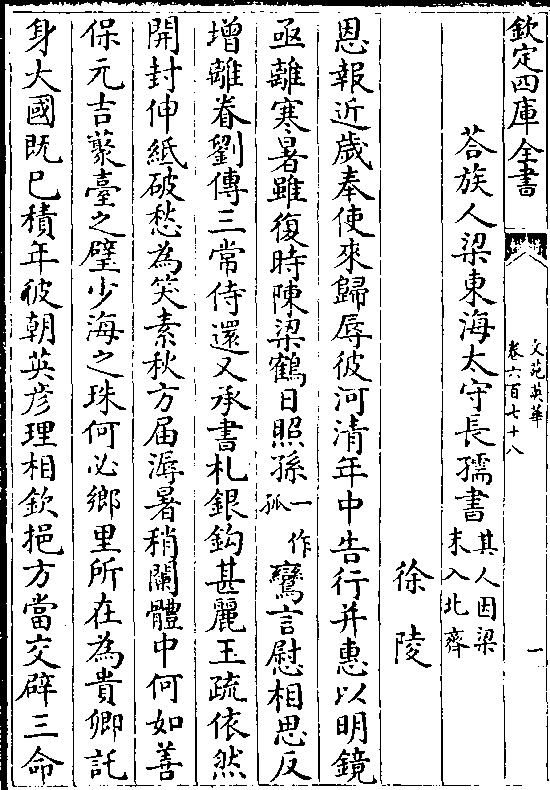 欽定四庫全書
文苑英華
卷六百七十八
一
荅族人梁東海太守長孺書其人因梁末入北齊
徐陵
恩報近歲奉使來歸辱彼河清年中告行并惠以明鏡
亟離寒暑雖復時陳梁鶴日照孫一作孤鸞言慰相思反
增離眷劉傳三常侍還又承書札銀鈎甚麗玉疏依然
開封伸紙破愁為笑素秋方届溽暑稍闌體中何如善
保元吉藂臺之璧少海之珠何必鄉里所在為貴卿託
身大國既已積年彼朝英彦理相欽挹方當交辟三命